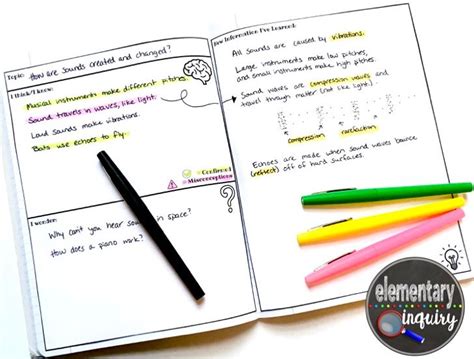 Topic: How are sounds created and changed?
I think/I know:
Musical instruments make different pitches.
Sound travels in waves, like light.
Loud sounds make vibrations.
Bats use echoes to fly.
= Confirmed
= Misconceptions
I wonder:
Why can't you hear sound in space?
How does a piano work?
New Information I've Learned:
All sounds are caused by vibrations.
Large instruments make low pitches,
and small instruments make high pitches.
Sound waves are compression waves and
travel through matter (not like light).
compression
rarefaction
Echoes are made when sound waves bounce
(reflect) off of hard surfaces.
elementary
inquiry